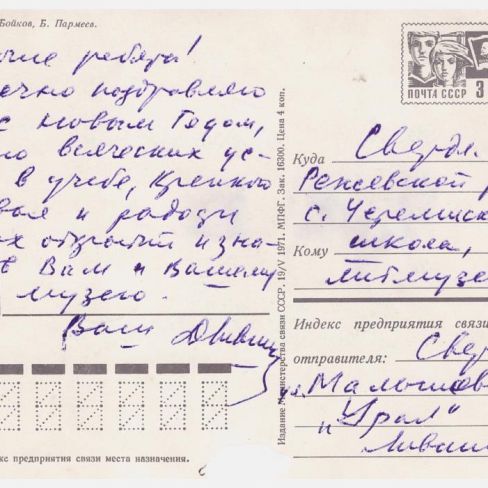 Бойков, Б. Пармеев.
ребята!
поздравляю
с Новым Годом,
всяческих ус-
в учебе, Крепкого
и радости
Вам и Вашему
музею.
Ваш
ПОЧТА СССР
3
Куда Свердл.
Режевской р
с. Черемисск
Кому школа,
литмузе
Индекс предприятия связи
отправителя: Свер
ул. Малышева
"Урал"
Издание Министерства связи СССР. 19/V 1971. МПФГ. Зак. 16300. Цена 4 коп.
кс предприятия связи места назначения.